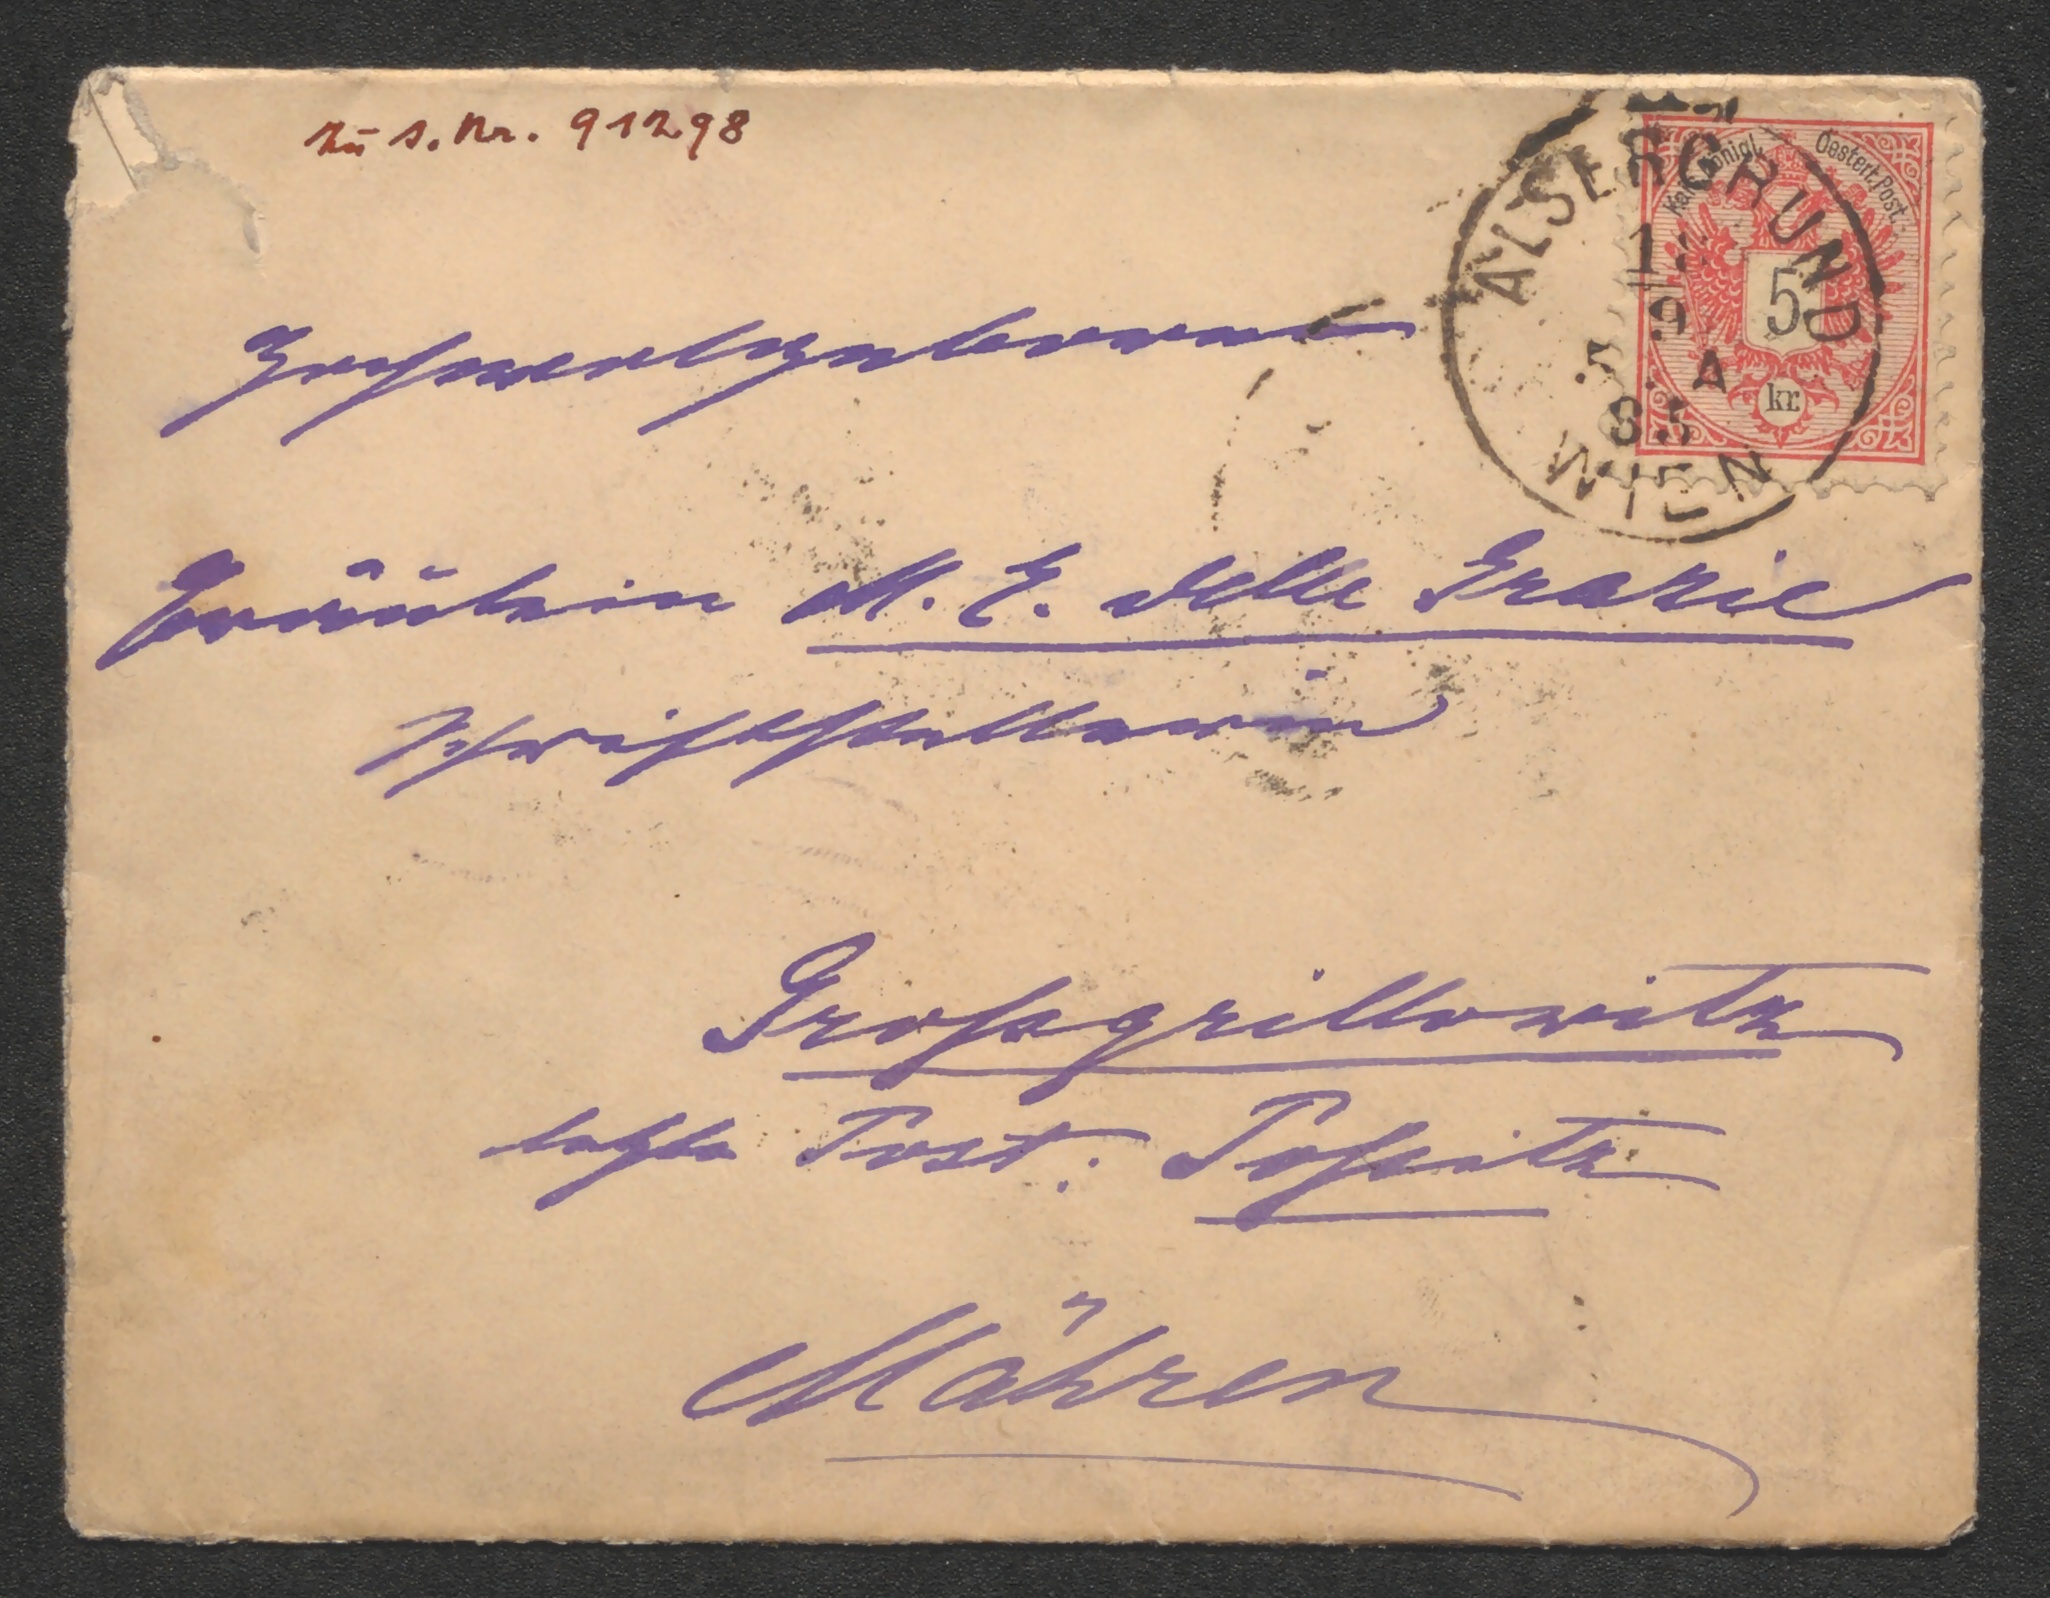 Zu I. Nr. 91298
Hochwohlgeboren
Fräulein M. E. delle Grazie
Schriftstellerin
Grossgrillowitz
letzte Post: Possitz
Mähren
ALSERGRUND
9
A
WIEN
Kais. Königl. Oesterr. Post.
5
kr.